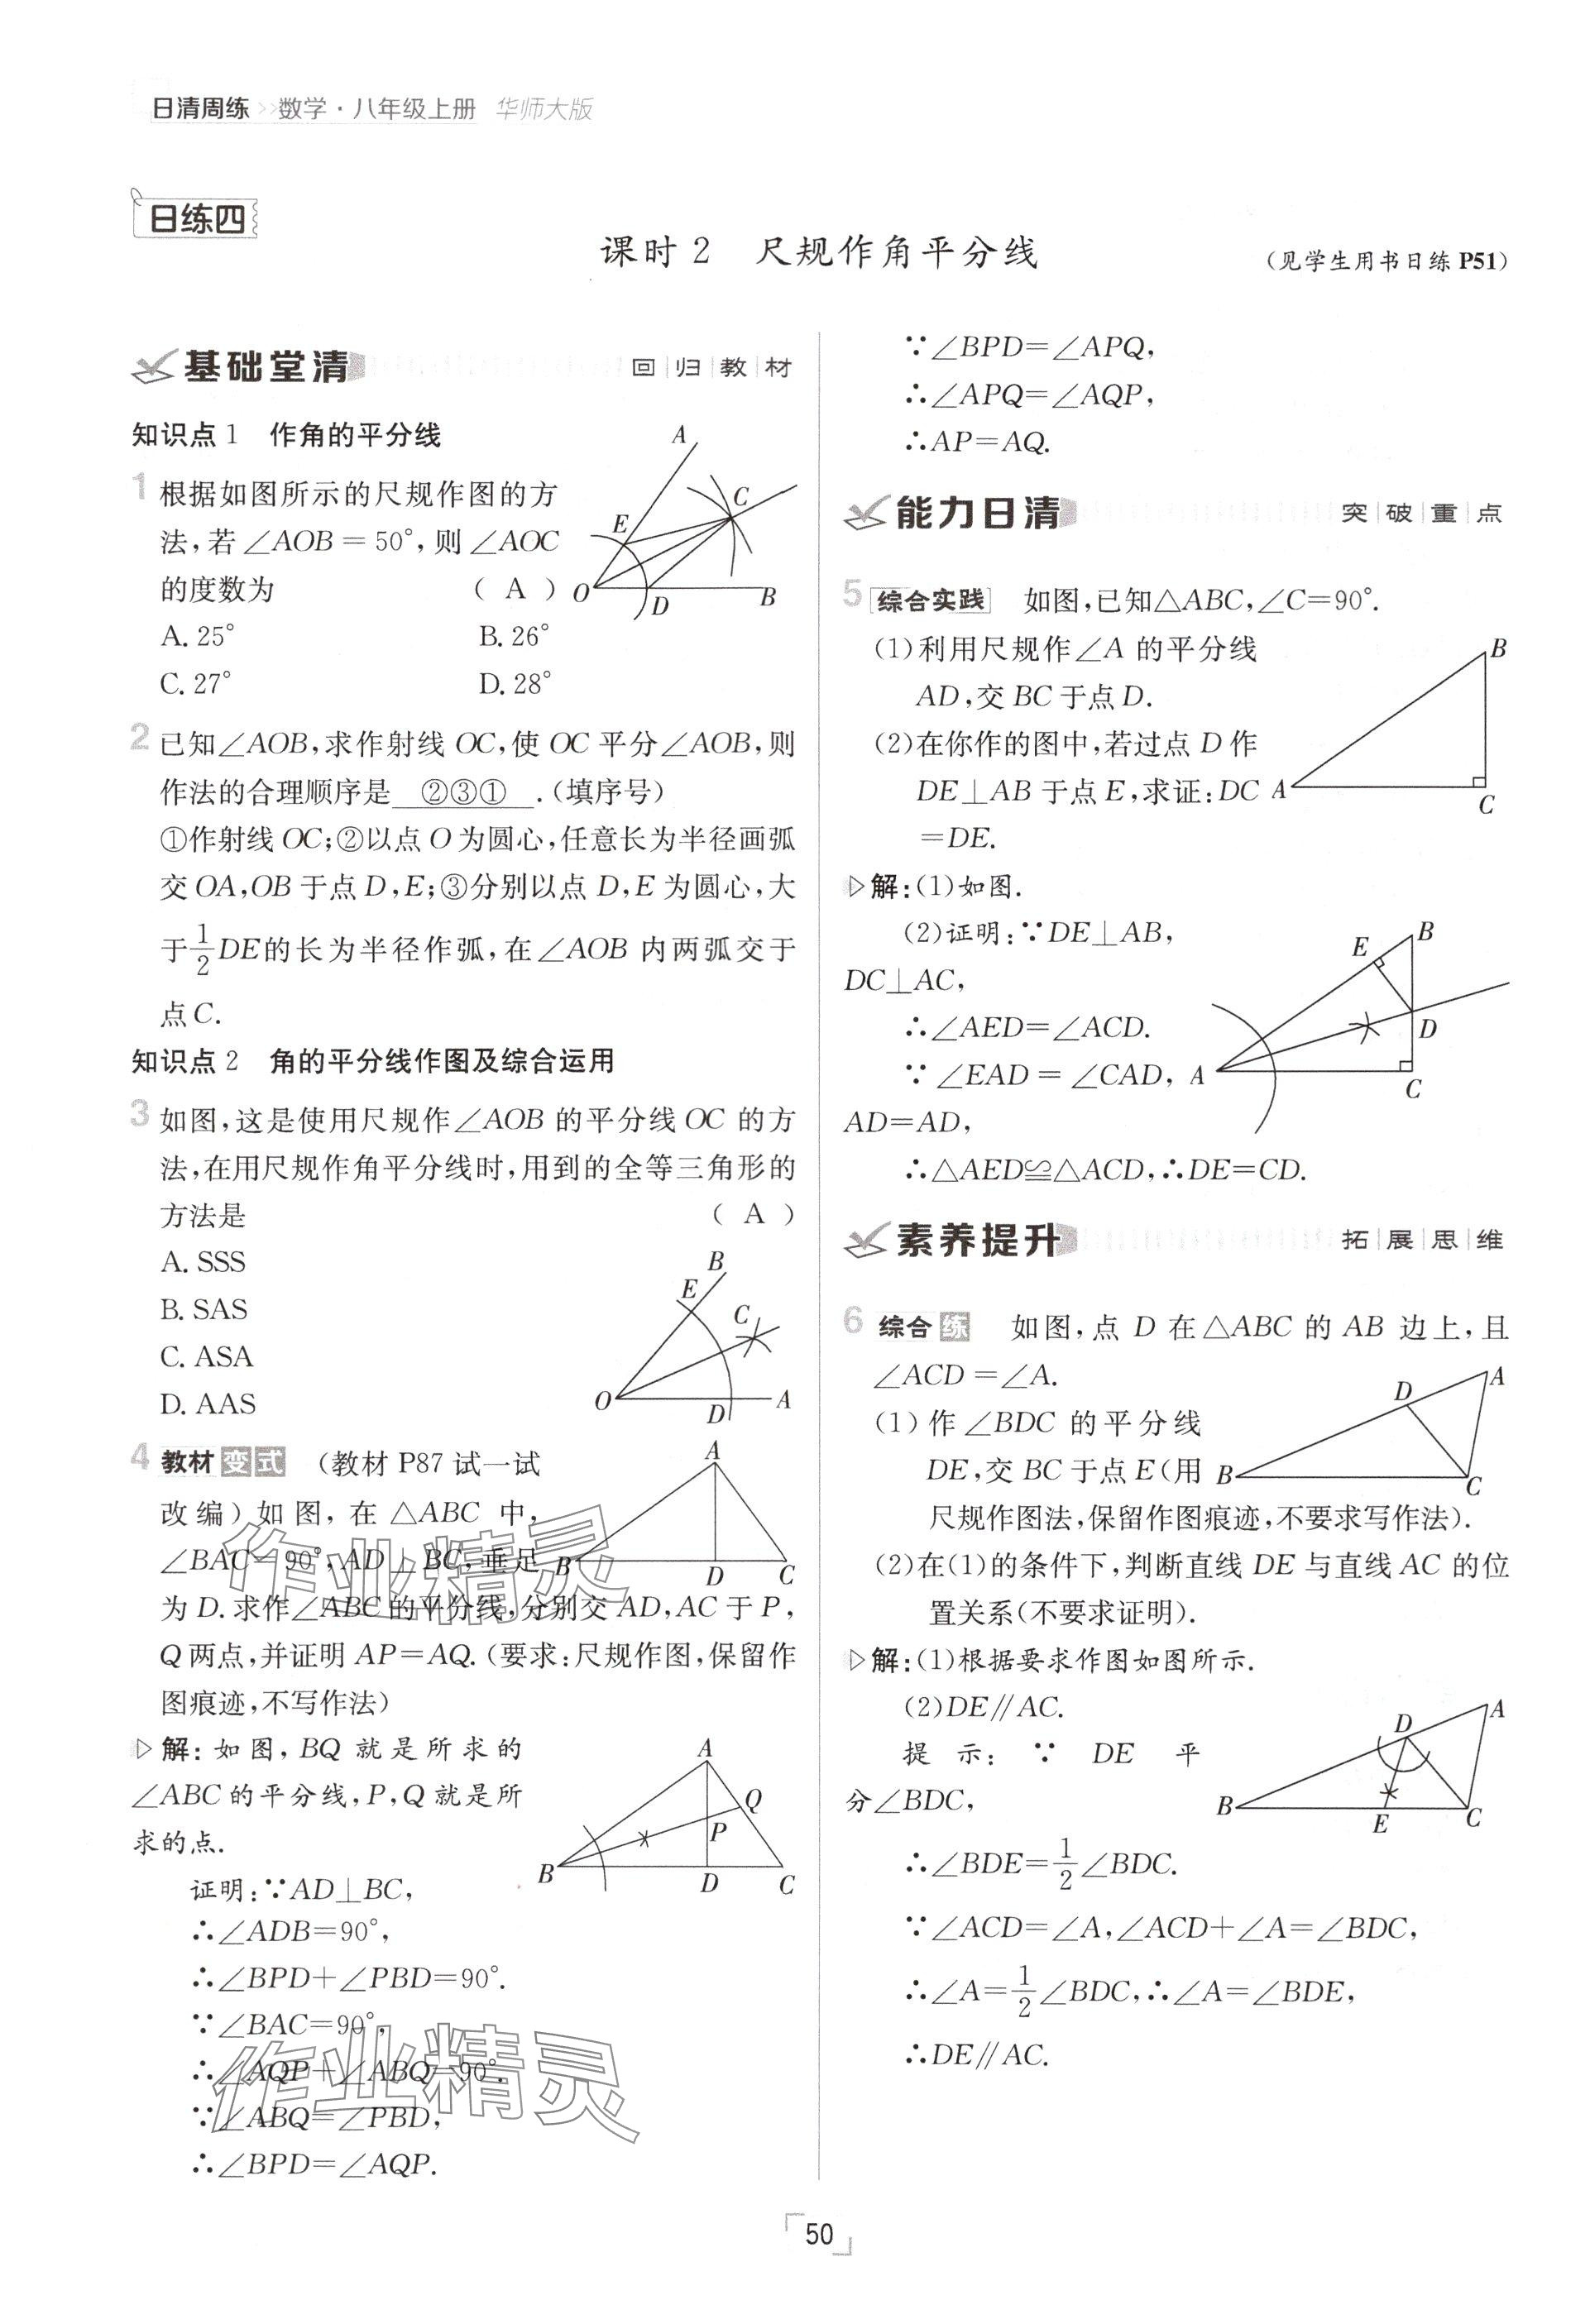 日清周练 >> 数学·八年级上册 华师大版
日练四
课时2 尺规作角平分线
(见学生用书日练P51)
基础堂清 回归教材
知识点1 作角的平分线
1 根据如图所示的尺规作图的方
法,若∠AOB=50°,则∠AOC
的度数为 ( A )
A. 25° B. 26°
C. 27° D. 28°
A
C
E
O
D
B
2 已知∠AOB,求作射线OC,使OC平分∠AOB,则
作法的合理顺序是 ②③① .(填序号)
①作射线OC;②以点O为圆心,任意长为半径画弧
交OA,OB于点D,E;③分别以点D,E为圆心,大
于1/2DE的长为半径作弧,在∠AOB内两弧交于
点C.
知识点2 角的平分线作图及综合运用
3 如图,这是使用尺规作∠AOB的平分线OC的方
法,在用尺规作角平分线时,用到的全等三角形的
方法是 ( A )
A. SSS
B. SAS
C. ASA
D. AAS
B
E
C
O
D
A
4 教材变式 (教材P87试一试
改编)如图,在△ABC中,
∠BAC=90°,AD⊥BC,垂足
为D.求作∠ABC的平分线,分别交AD,AC于P,
Q两点,并证明AP=AQ.(要求:尺规作图,保留作
图痕迹,不写作法)
A
B
D
C
解:如图,BQ就是所求的
∠ABC的平分线,P,Q就是所
求的点.
A
Q
P
B
D
C
证明:∵AD⊥BC,
∴∠ADB=90°,
∴∠BPD+∠PBD=90°.
∵∠BAC=90°,
∴∠AQP+∠ABQ=90°.
∵∠ABQ=∠PBD,
∴∠BPD=∠AQP.
∵∠BPD=∠APQ,
∴∠APQ=∠AQP,
∴AP=AQ.
能力日清 突破重点
5 综合实践 如图,已知△ABC,∠C=90°.
(1)利用尺规作∠A的平分线
AD,交BC于点D.
(2)在你作的图中,若过点D作
DE⊥AB于点E,求证:DC
=DE.
B
A
C
解:(1)如图.
(2)证明:∵DE⊥AB,
DC⊥AC,
∴∠AED=∠ACD.
∵∠EAD=∠CAD,
AD=AD,
∴△AED≌△ACD,∴DE=CD.
E
B
D
A
C
素养提升 拓展思维
6 综合练 如图,点D在△ABC的AB边上,且
∠ACD=∠A.
(1)作∠BDC的平分线
DE,交BC于点E(用
尺规作图法,保留作图痕迹,不要求写作法).
(2)在(1)的条件下,判断直线DE与直线AC的位
置关系(不要求证明).
A
D
B
C
解:(1)根据要求作图如图所示.
(2)DE∥AC.
提示:∵DE平
分∠BDC,
A
D
B
E
C
∴∠BDE=1/2∠BDC.
∵∠ACD=∠A,∠ACD+∠A=∠BDC,
∴∠A=1/2∠BDC,∴∠A=∠BDE,
∴DE∥AC.
作业精灵
作业精灵
50